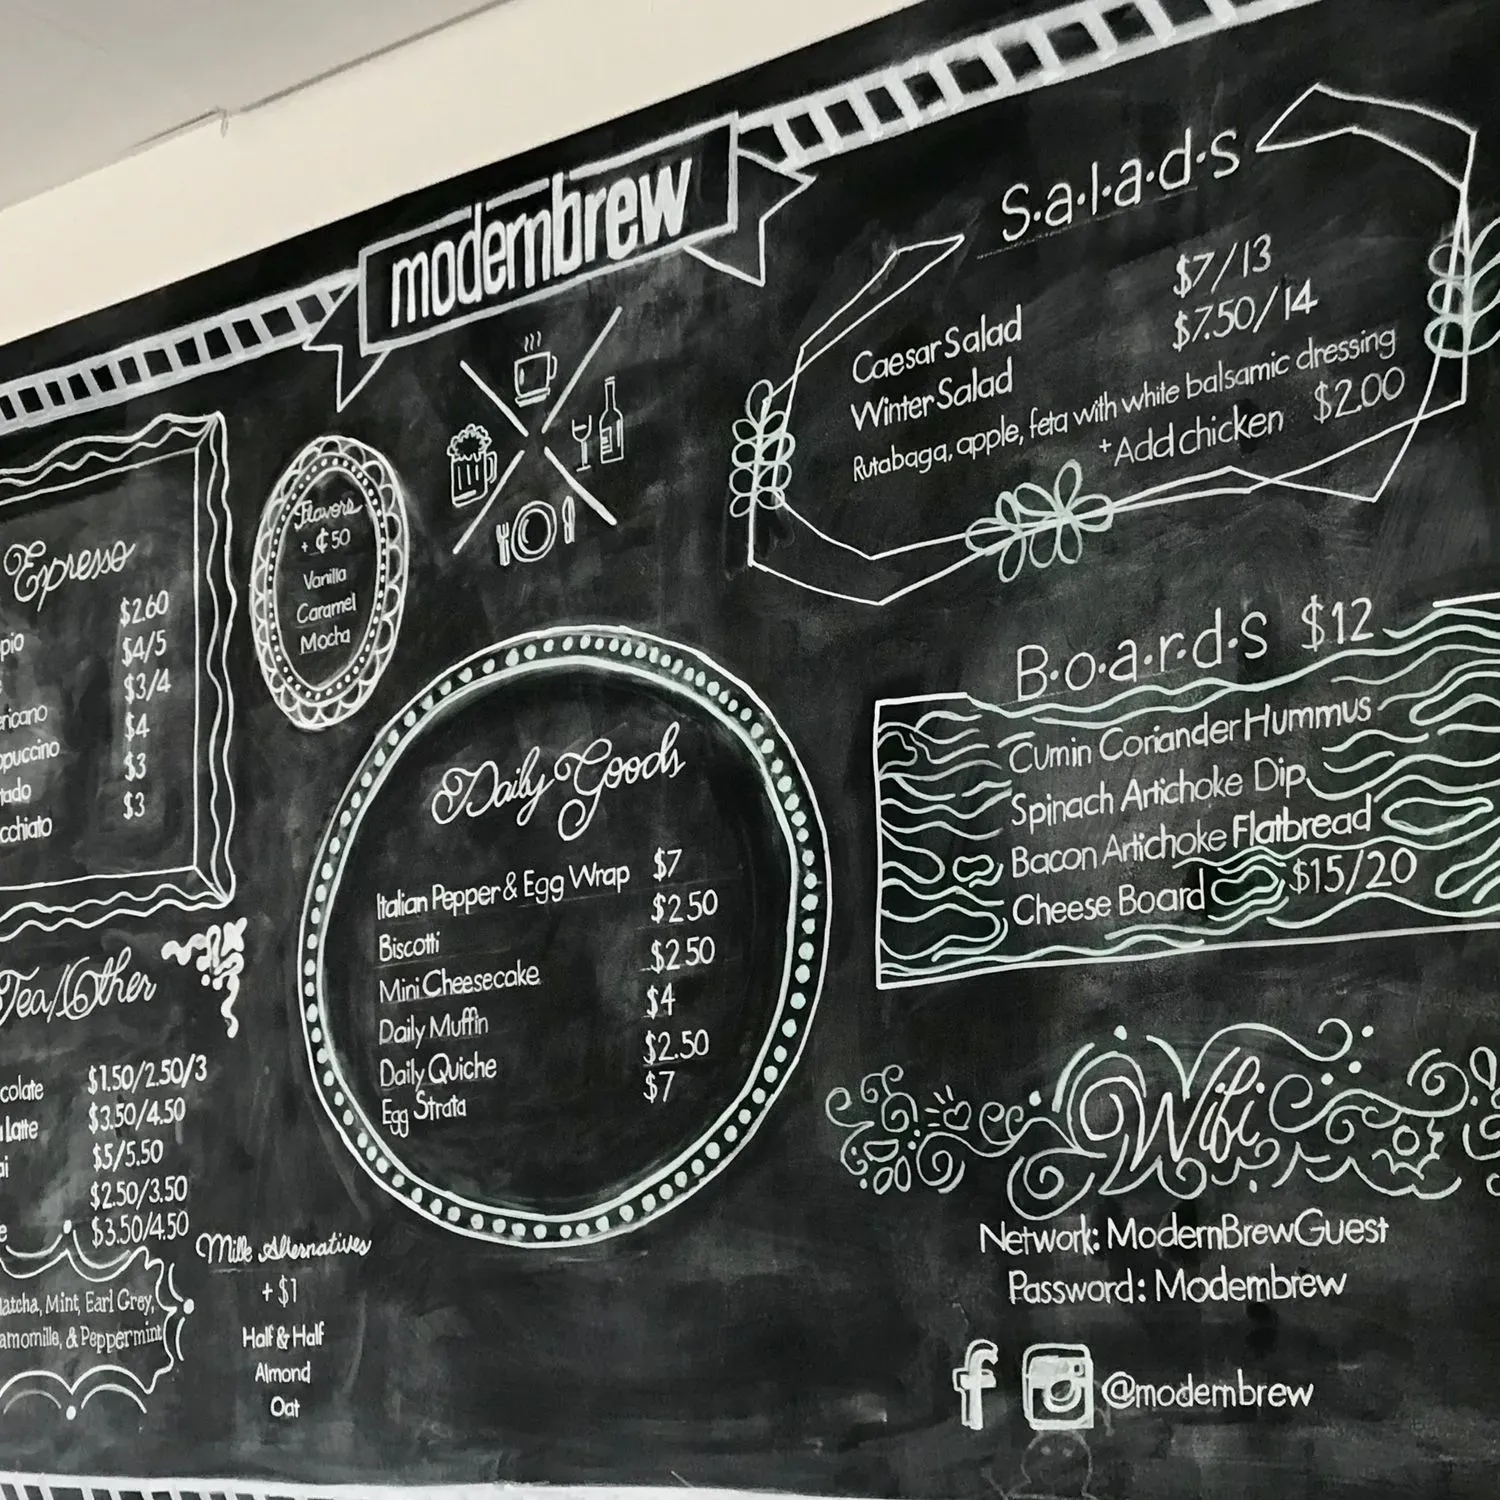 modernbrew
Expresso
pio $2.60
$4/5
ricano $3/4
ppuccino $4
tado $3
cchiato $3
Flavors
+ ¢50
Vanilla
Caramel
Mocha
Tea/Other
colate $1.50/2.50/3
Latte $3.50/4.50
ai $5/5.50
$2.50/3.50
e $3.50/4.50
atcha, Mint, Earl Grey,
amomille, & Peppermint
Milk Alternatives
+ $1
Half & Half
Almond
Oat
Daily Goods
Italian Pepper & Egg Wrap $7
Biscotti $2.50
Mini Cheesecake $2.50
Daily Muffin $4
Daily Quiche $2.50
Egg Strata $7
S·a·l·a·d·s
Caesar Salad $7/13
Winter Salad $7.50/14
Rutabaga, apple, feta with white balsamic dressing
+Add chicken $2.00
B·o·a·r·d·s $12
Cumin Coriander Hummus
Spinach Artichoke Dip
Bacon Artichoke Flatbread
Cheese Board $15/20
Wifi
Network: ModernBrewGuest
Password: Modernbrew
@modernbrew